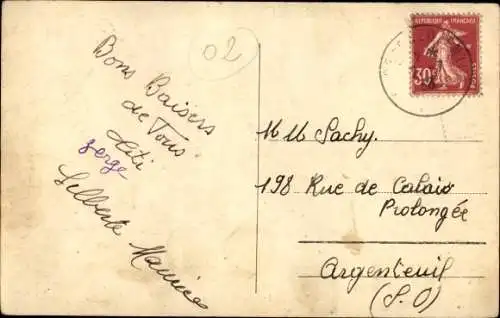 02
Bons Baisers
de Tous
Titi
Serge
Gilberte Maurice
REPUBLIQUE FRANÇAISE
30c
M M Sachy.
198 Rue de Calais
Prolongée
Argenteuil
(S.O)